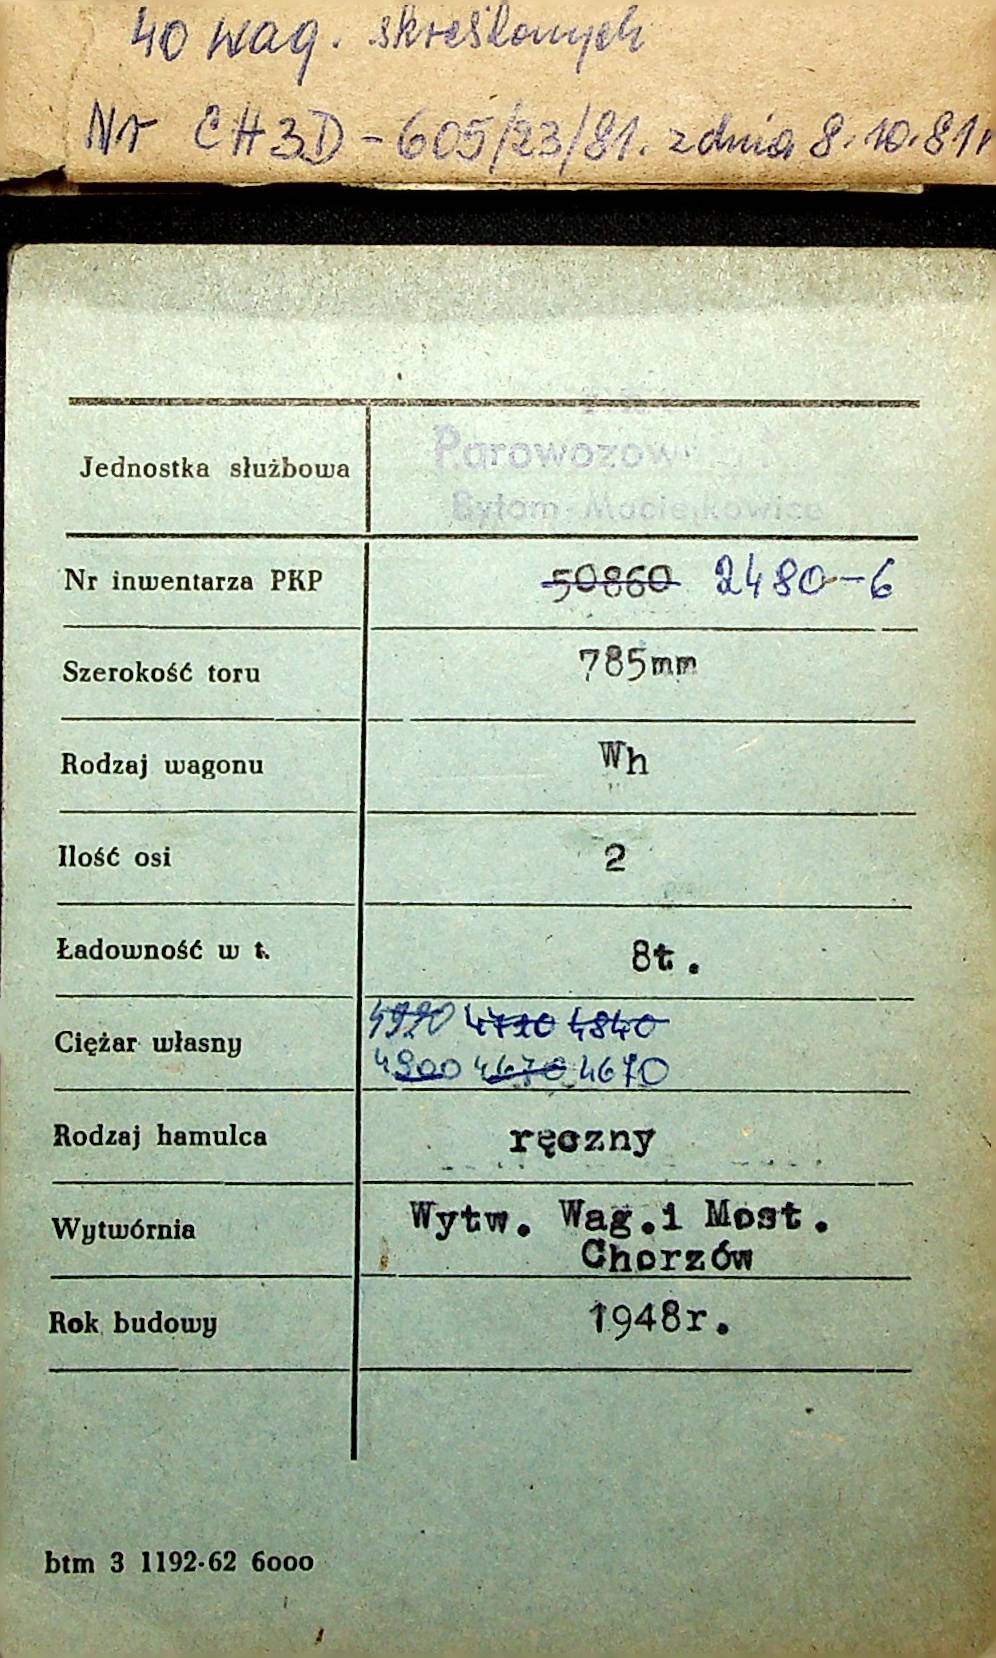 40 wag. skreślonych
Nr CH3D-605/23/81. z dnia 8.10.81r
Jednostka służbowa
Parowozow
Bytom-Maciejkowice
Nr inwentarza PKP 50860 2480-6
Szerokość toru 785mm
Rodzaj wagonu Wh
Ilość osi 2
Ładowność w t. 8t.
4990 4720 4840
Ciężar własny
4900 4670 4670
Rodzaj hamulca ręczny
Wytwórnia Wytw. Wag.i Most.
Chorzów
Rok budowy 1948r.
btm 3 1192-62 6000